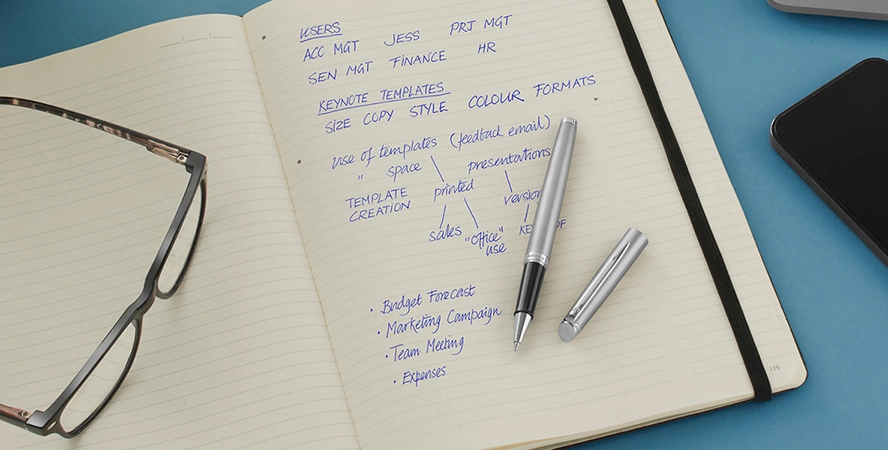 USERS
ACC MGT JESS PRJ MGT
SEN MGT FINANCE HR
KEYNOTE TEMPLATES
SIZE COPY STYLE COLOUR FORMATS
use of templates (feedback email)
" space presentations
TEMPLATE CREATION printed version
sales "office" use
• Budget Forecast
• Marketing Campaign
• Team Meeting
• Expenses
119